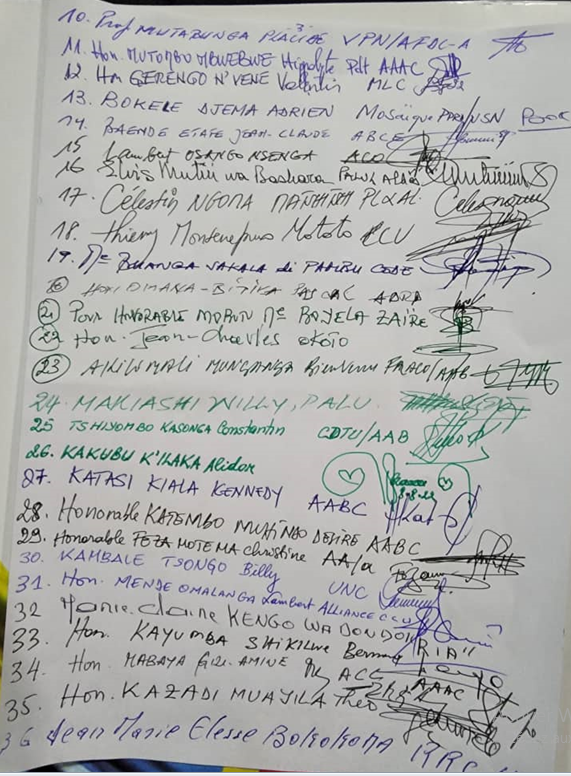 10. Prof MUTABUNGA PLACIDE VPN/AFDC-A
11. Hon. MUTOMBU MBWEBWE Hippolyte Pdt AAAC
12. Hon GERENGO N'VENE Valentin MLC
13. BOKELE DJEMA ADRIEN Mosaïque
14. BAENDE ETAFE JEAN-CLAUDE ABCE
15 Lambert OSANGO NSENGA ACO
16 Elvis Mutiri wa Bashara
17. Célestin NGOMA
18. Thierry Monsenepwo Mototo
19. Me BHANGA SAKALA di CODE
20 HON OMANA-BITIKA PASCAL
21 Pour HONORABLE Me BOYELA ZAÏRE
22 Hon. Jean-Charles OKOTO
23 AKILIMALI MUNGANGA Bienvenu /AAB
24. MAKIASHI WILLY, PALU.
25 TSHIYOMBO KASONGA Constantin CDTU/AAB
26. KAKUBU K'ILAKA Alidor
27. KATASI KIALA KENNEDY AABC
28. Honorable KATEMBO MUHINDO DESIRE AABC
29. Honorable FEZA MOTEMA Christine AA/a
30. KAMBALE TSONGO Billy UNC
31. Hon. MENDE OMALANGA Lambert ALLIANCE CCU
32 Marie-Claire KENGO WA DONDO
33. Hon. KAYUMBA SHIKILWE
34. Hon. MABAYA GIZI AMINE ACC
35. Hon. KAZADI MUAYILA Théo AAAC
36 Jean Marie Elesse BOKOKOMA